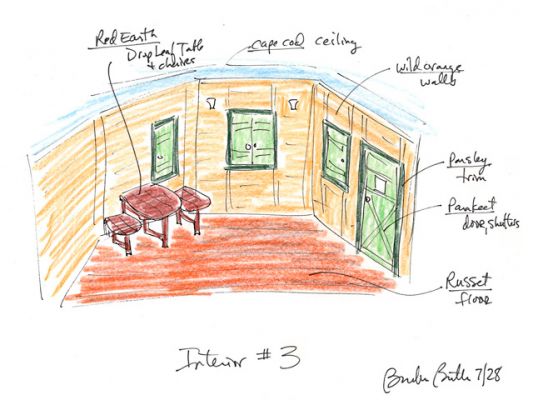 Red Earth
Drop Leaf Table
+ chaires
cape cod ceiling
wild orange
walls
Parsley
trim
Parkeet
door, shutters
Russet
floor
Interior # 3
7/28